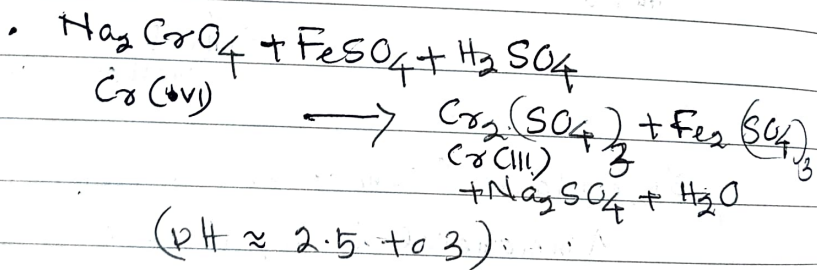 • Na2CrO4 + FeSO4 + H2SO4
Cr (VI)
⟶ Cr2(SO4)3 + Fe2(SO4)3
Cr(III)
+ Na2SO4 + H2O
(pH ≈ 2.5 to 3)